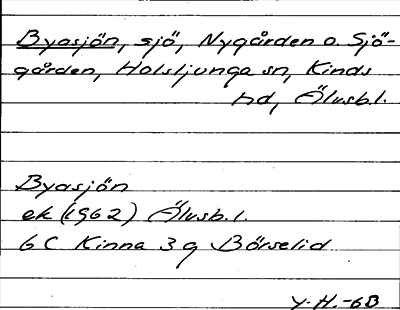 Byasjön, sjö, Nygården o. Sjö-
gården, Holsljunga sn, Kinds
hd, Älvsb.l.
Byasjön
ek (1962) Älvsb.l.
6C Kinna 3g Börselid
Y.H.-63